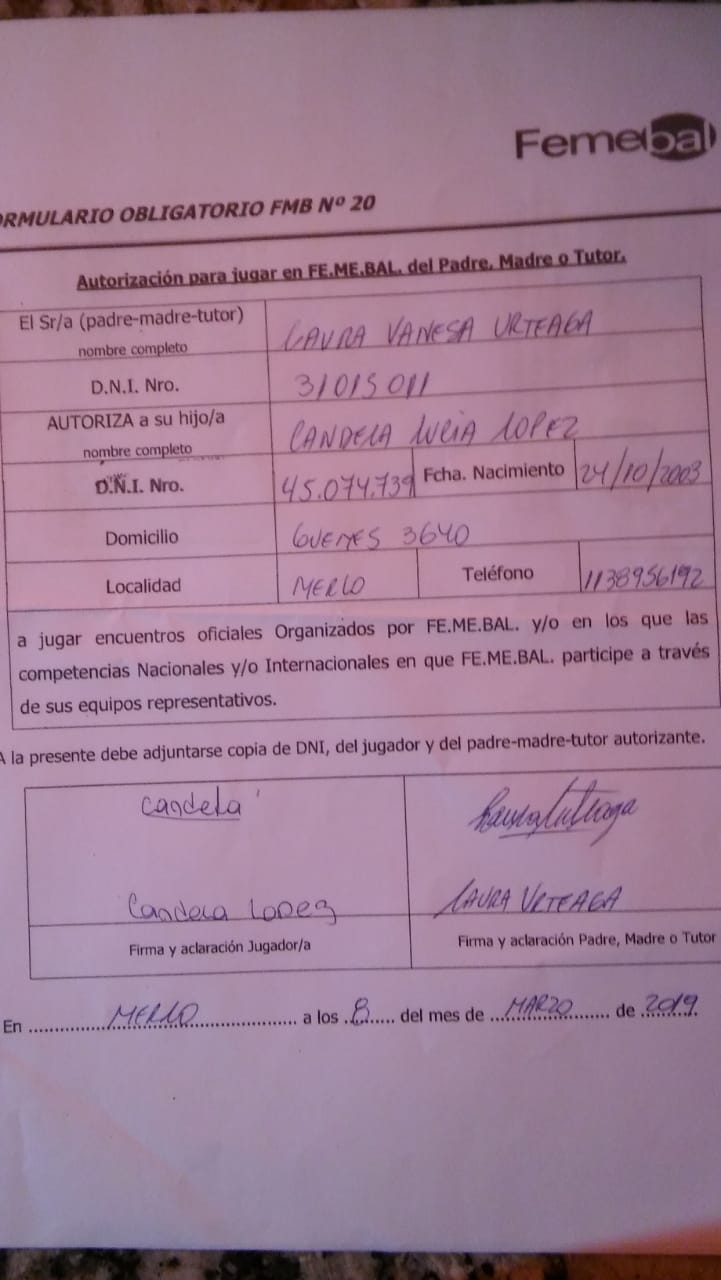 Femebal
ORMULARIO OBLIGATORIO FMB Nº 20
Autorización para jugar en FE.ME.BAL. del Padre, Madre o Tutor.
El Sr/a (padre-madre-tutor)
nombre completo
LAURA VANESA URTEAGA
D.N.I. Nro.
31015011
AUTORIZA a su hijo/a
nombre completo
CANDELA LUCIA LOPEZ
D.N.I. Nro.
45.074.739
Fcha. Nacimiento
24/10/2003
Domicilio
GUEMES 3640
Localidad
MERLO
Teléfono
1138956192
a jugar encuentros oficiales Organizados por FE.ME.BAL. y/o en los que las
competencias Nacionales y/o Internacionales en que FE.ME.BAL. participe a través
de sus equipos representativos.
A la presente debe adjuntarse copia de DNI, del jugador y del padre-madre-tutor autorizante.
Candela
Laura Urteaga
Candela Lopez
LAURA URTEAGA
Firma y aclaración Jugador/a
Firma y aclaración Padre, Madre o Tutor
En ........MERLO........ a los ..8.... del mes de ...MARZO...... de .2019.